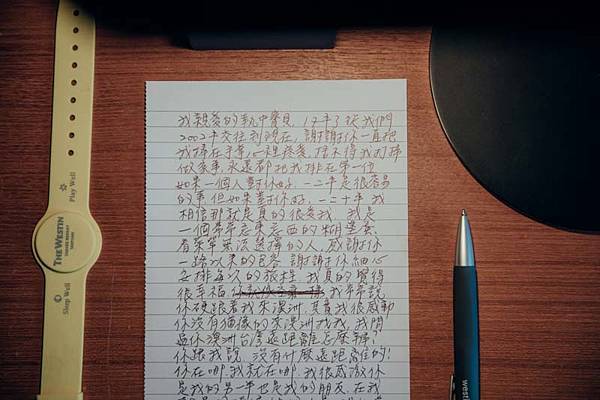 我親愛的執中寶貝，17年了從我們
2002年交往到現在，謝謝你一直把
我捧在手掌心裡疼愛，捨不得我打掃
做家事，永遠都把我排在第一位
如果一個人對你好，一二年是很容易
的事，但如果對你好，一二十年 我
相信那就是真的很愛我，我是
一個常常忘東忘西的糊塗蛋
有菜單無法選擇的人，感謝你
一路以來的包容 謝謝你細心
安排每次的旅程，我真的覺得
很幸福 我常說
你硬跟著我來澳洲，其實我很感動
你沒有猶豫的來澳洲找我，我問
過你澳洲台灣遠距離怎麼辦？
你跟我說，沒有什麼遠距離的！
你在哪，我就在哪，我很感激你
是我的另一半也是我的朋友，在我
Play Well
THE WESTIN
Sleep Well
west